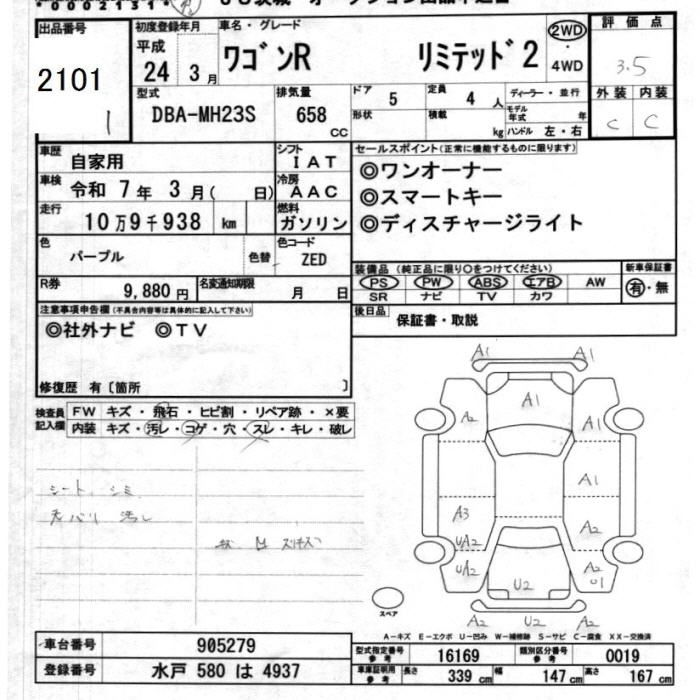 *00021314*
出品番号
2101
1
初度登録年月
平成
24年 3月
車名・グレード
ワゴンR リミテッド2
2WD
・
4WD
評価点
3.5
外装 内装
C C
型式
DBA-MH23S
排気量
658
CC
ドア
5
定員
4人
ディーラー・並行
形状
積載
kg
モデル年式 年
ハンドル 左・右
車歴
自家用
シフト
IAT
車検
令和 7年 3月( 日)
冷房
AAC
走行
10万9千938 km
燃料
ガソリン
色
パープル
色替
色コード
ZED
R券
9,880円
名変通知期限
月 日
セールスポイント(正常に機能するものに限ります)
◎ワンオーナー
◎スマートキー
◎ディスチャージライト
装備品(純正品に限り○をつけてください)
新車保証書
PS PW ABS エアB AW
有・無
SR ナビ TV カワ
後日品
保証書・取説
注意事項申告欄(不具合内容等は具体的に記入して下さい)
◎社外ナビ ◎TV
修復歴 有〔箇所 〕
検査員記入欄
FW キズ・飛石・ヒビ割・リペア跡・×要
内装 キズ・汚レ・コゲ・穴・スレ・キレ・破レ
シート シミ
天バリ 汚レ
A1 A1
A2 A1
A1
A3 A2
UA2
UA2 U2 A2
U1
A2 U2 A2
スペア
A-キズ E-エクボ U-凹み W-補修跡 S-サビ C-腐食 XX-交換済
車台番号
905279
型式指定番号
参考
16169
類別区分番号
参考
0019
登録番号
水戸 580 は 4937
車庫証明用
参考
長さ 339cm 幅 147cm 高さ 167cm